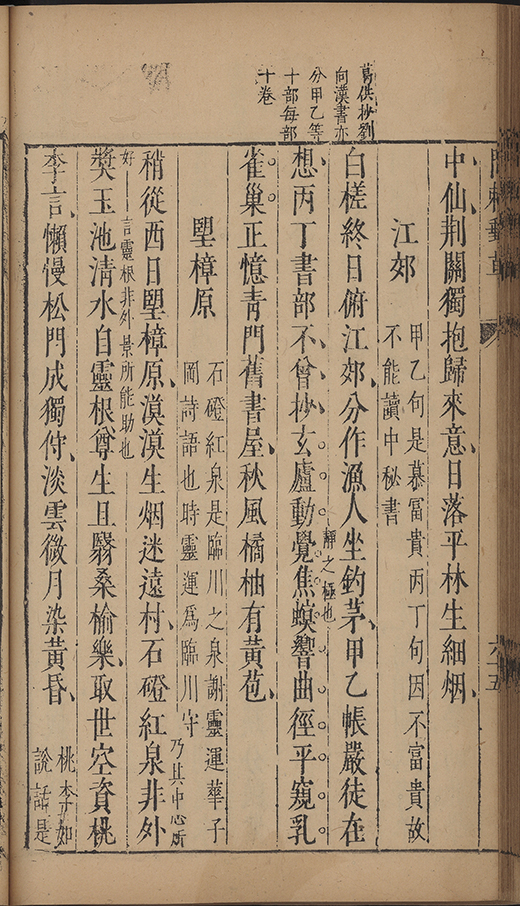 葛供抄劉
向漢書亦
分甲乙等
十部每部
十卷
中仙荆關獨抱歸來意日落平林生細烟
江郊
甲乙句是慕冨貴丙丁句因不富貴故
不能讀中秘書
白槎終日俯江郊分作漁人坐釣茅甲乙帳嚴徒在
想丙丁書部不曾抄玄廬動覺焦螟響曲徑平窺乳
靜之極也
雀巢正憶靑門舊書屋秋風橘柚有黃苞
朢樟原
石磴紅泉是臨川之泉謝靈運華子
岡詩語也時靈運爲臨川守
稍從西日朢樟原漠漠生烟迷遠村石磴紅泉非外
乃其中心所
好
言靈根非外景所能助也
奬玉池清水自靈根尊生且翳桑榆樂取世空資桃
李言懶慢松門成獨佇淡雲微月染黃昏
桃李如
說話是